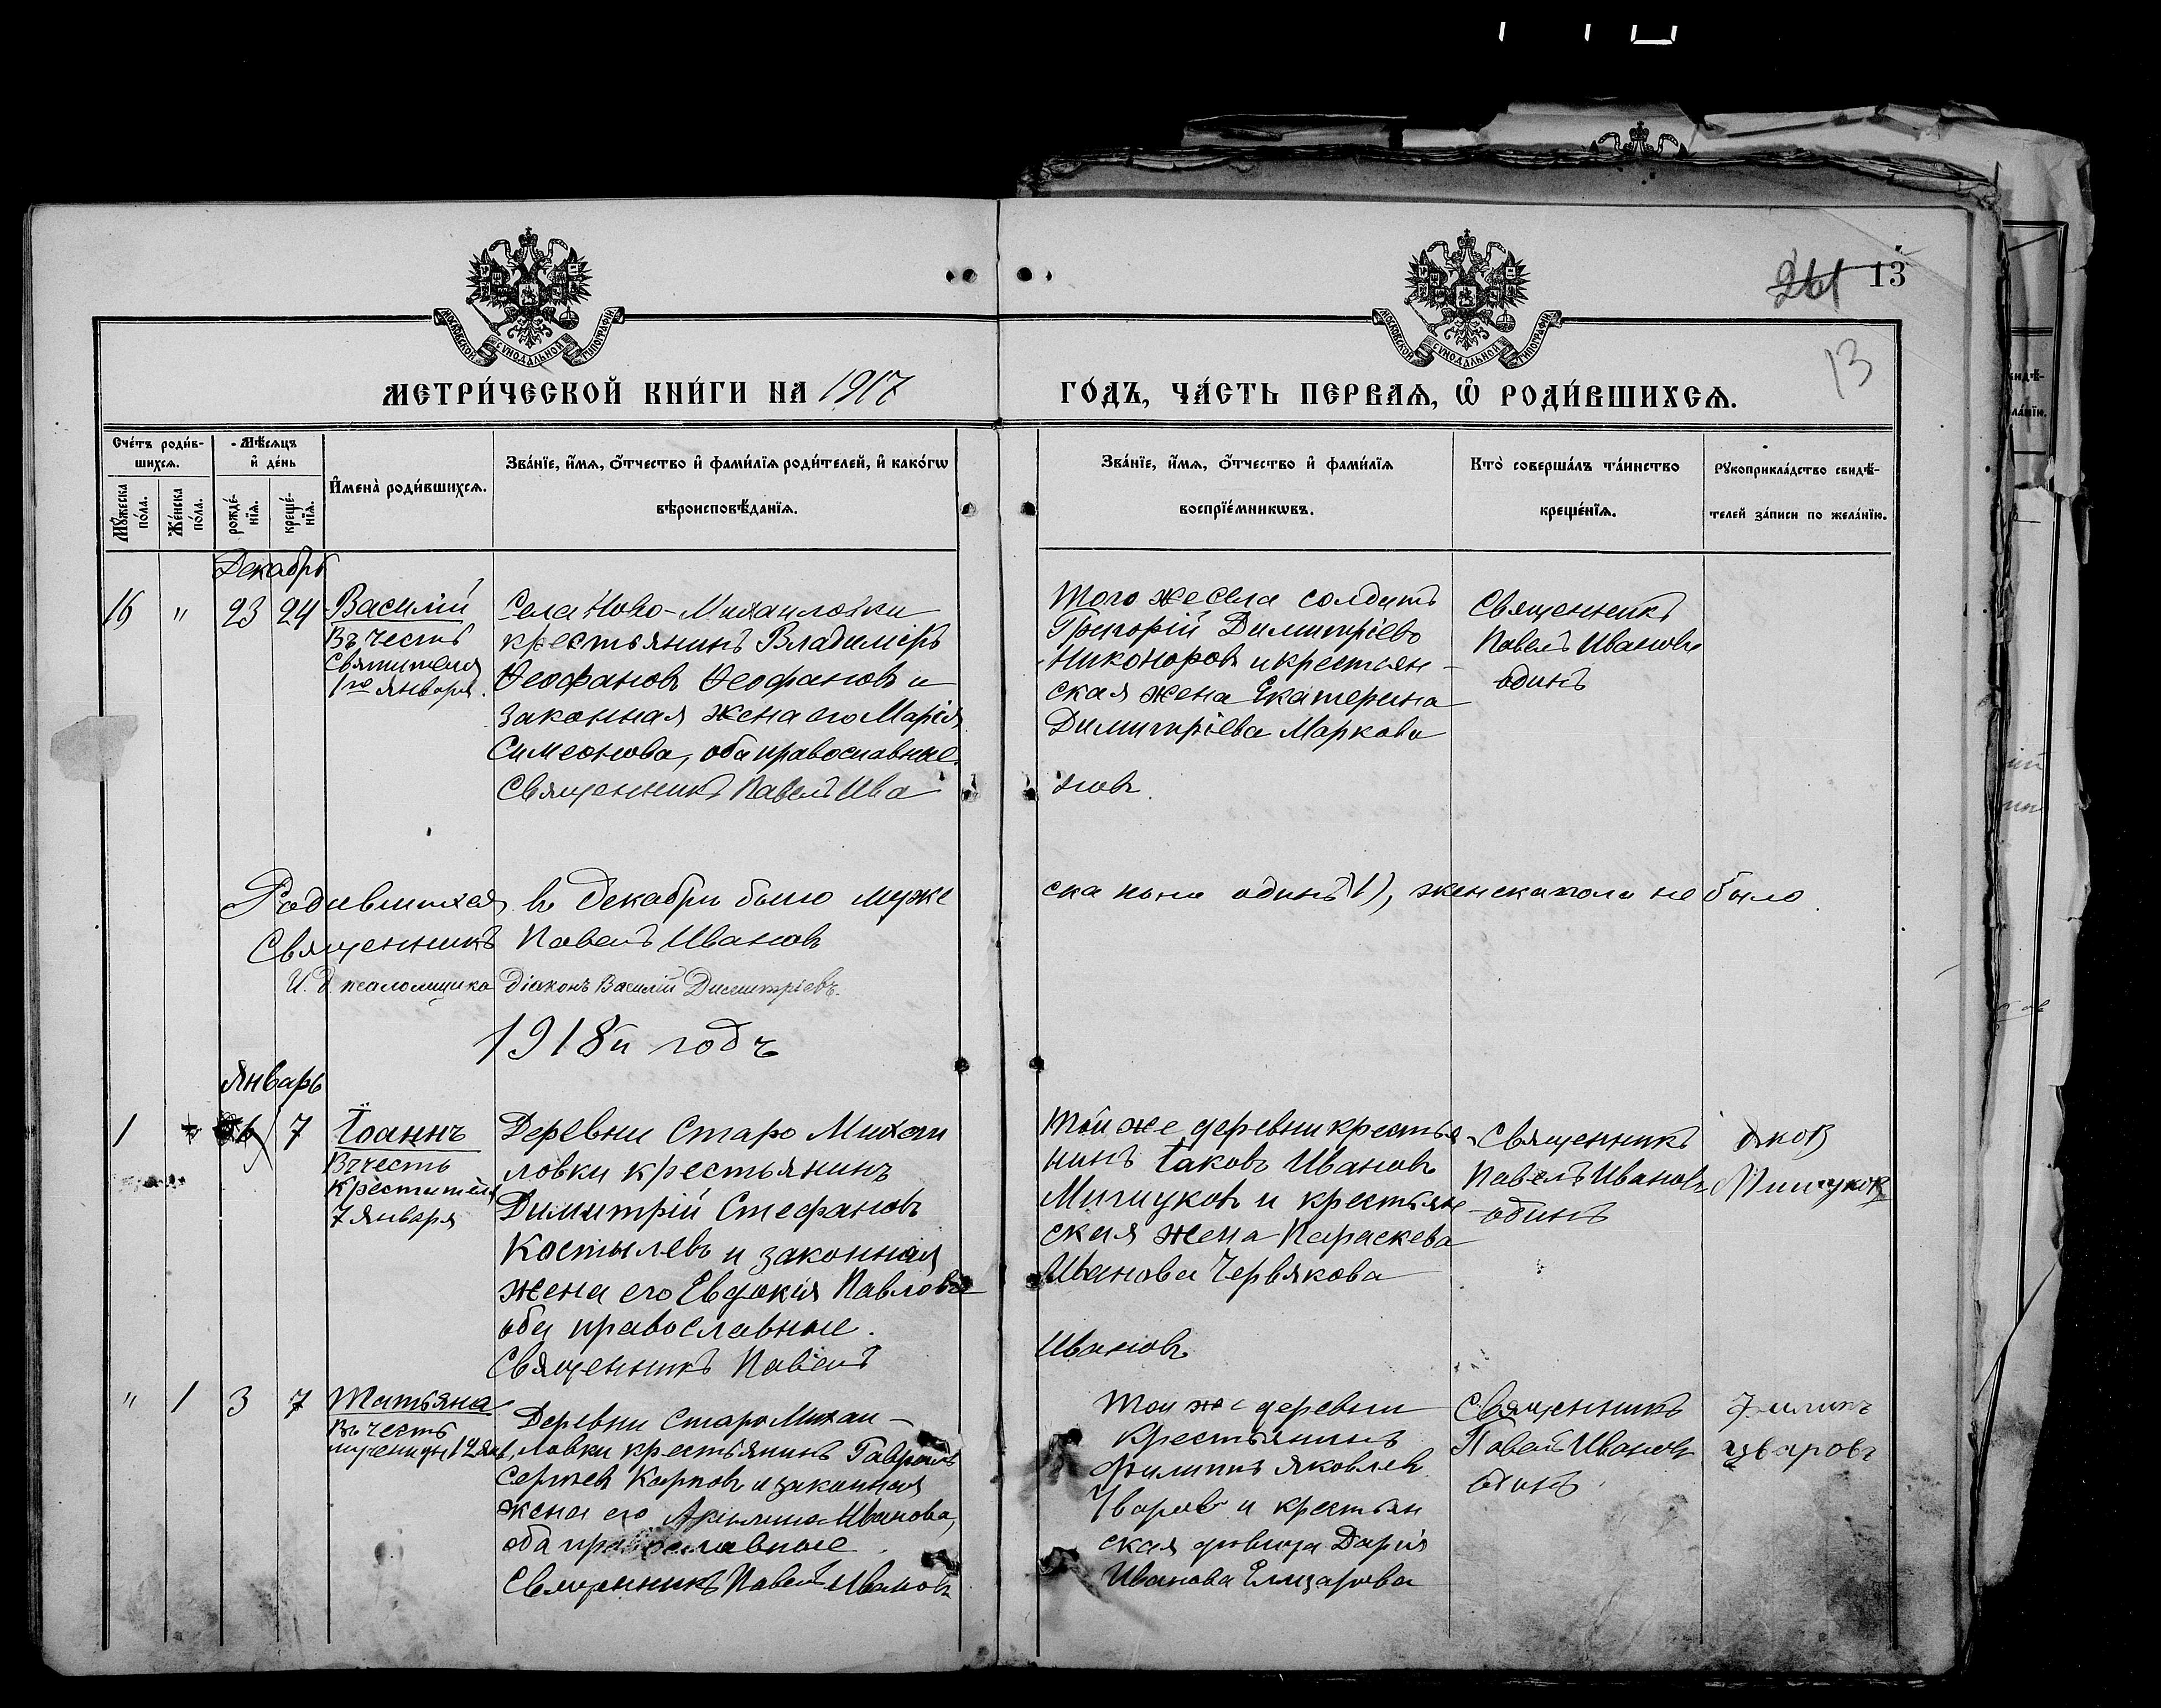 МОСКОВСКОЙ СѴНОДАЛЬНОЙ ТИПОГРАФІИ
МОСКОВСКОЙ СѴНОДАЛЬНОЙ ТИПОГРАФІИ
261 13
13
МЕТРИ́ЧЕСКОЙ КНИ́ГИ НА 1917
ГО́ДЪ, ЧА́СТЬ ПЕРВАѦ, Ѡ҆ РОДИ́ВШИХСѦ.
Сче́тъ роди́в-
шихсѧ.
Мꙋ́жеска по́ла.
Же́нска по́ла.
Мѣ́сѧцъ
и҆ де́нь
рожде́-
нїѧ.
креще́-
нїѧ.
И҆мена̀ роди́вшихсѧ.
Зва́нїе, и҆́мѧ, ѻ҆́тчество и҆ фами́лїѧ роди́телей, и҆ како́гѡ
вѣроисповѣ́данїѧ.
Зва́нїе, и҆́мѧ, ѻ҆́тчество и҆ фами́лїѧ
воспрїе́мникѡвъ.
Кто̀ соверша́лъ та́инство
креще́нїѧ.
Рꙋкоприкла́дство свидѣ́-
телей за́писи по жела́нїю.
Декабрь
16 " 23 24
Василій
Въ честь
Святителя
1го января.
Села Ново-Михайловки
крестьянинъ Владиміръ
Ѳеофановъ Ѳеофановъ и
законная жена его Марія
Симеонова, оба православные.
Священникъ Павелъ Ива
Того же села солдатъ
Григорій Димитріевъ
Никоноровъ и крестьян-
ская жена Екатерина
Димитріева Маркова
новъ.
Священникъ
Павелъ Ивановъ
один
Родившихся въ декабрѣ было муже
ска пола одинъ (1), женска пола не было.
Священникъ Павелъ Ивановъ
И. д. псаломщика діаконъ Василій Димитріевъ.
1918й годъ
Январь
1 6 7
Іоаннъ
Въ честь
Крестителя
7 января
Деревни Старо Михай
ловки крестьянинъ
Димитрій Стефановъ
Костылевъ и законная
жена его Евдокія Павлова
оба православные.
Священникъ Павелъ
Той же деревни крестья
нинъ Іаковъ Ивановъ
и крестьян
ская жена Параскева
Иванова Червякова
Ивановъ
Священникъ
Павелъ Ивановъ
одинъ
Яков
" 1 3 7
Татьяна
Въ честь
мученицы 12 янв.
Деревни Старо Михай-
ловки крестьянинъ Гавріилъ
Сергѣев Карповъ и законная
жена его Акилина Иванова,
оба православные.
Священникъ Павелъ Ивановъ
Той же деревни
крестьянинъ
Филиппъ Яковлев
Уваров и крестьян
ская дѣвица Дарія
Иванова Елизарова
Священникъ
Павелъ Ивановъ
одинъ
Филипъ
Уваровъ